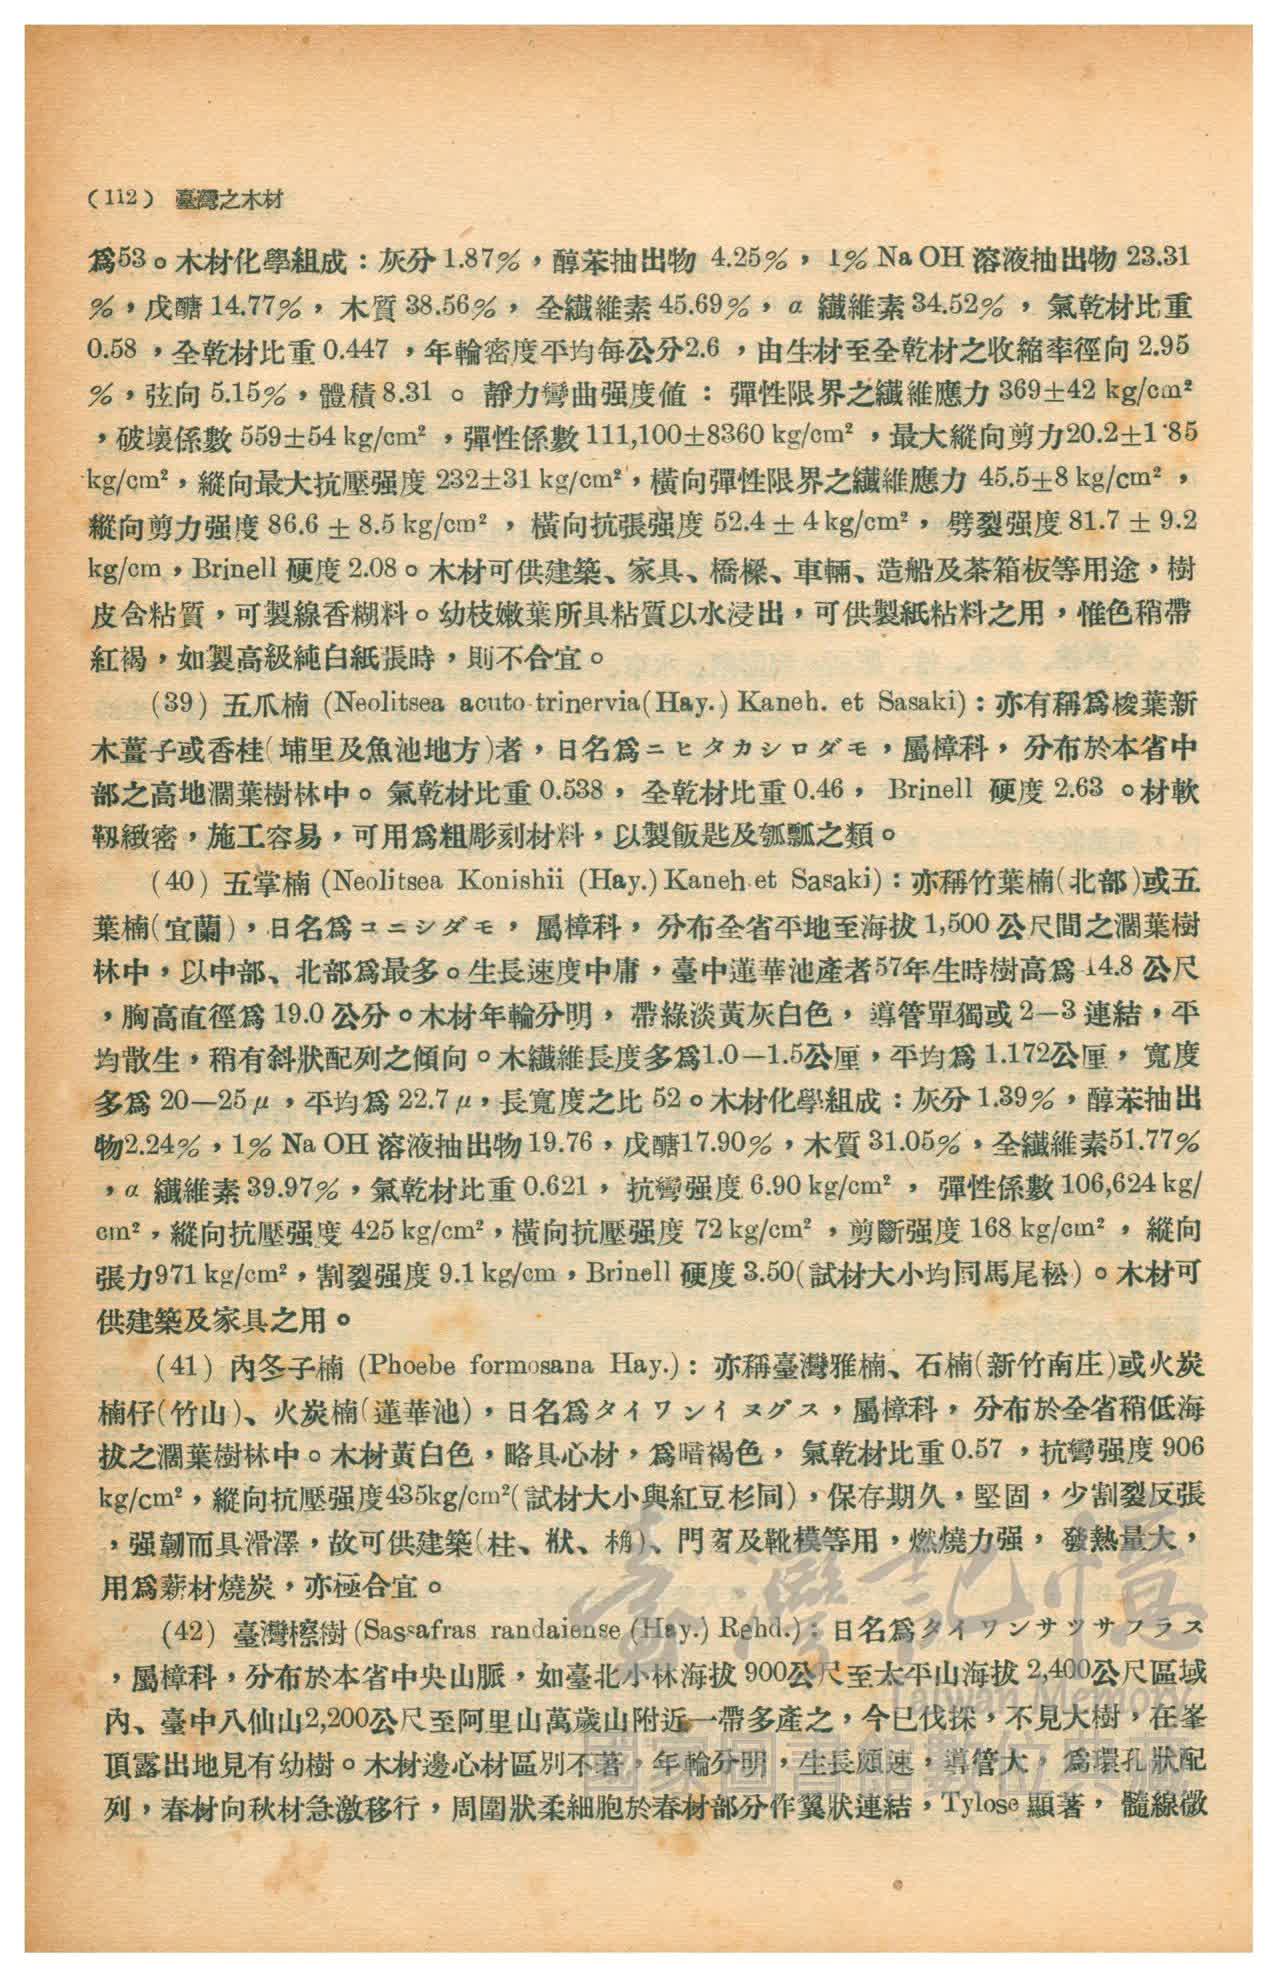 (112) 臺灣之木材
爲53。木材化學組成：灰分1.87%，醇苯抽出物 4.25%，1% Na OH 溶液抽出物 23.31
%，戊醣14.77%，木質38.56%，全纖維素45.69%，α 纖維素34.52%，氣乾材比重
0.58，全乾材比重0.447，年輪密度平均每公分2.6，由生材至全乾材之收縮率徑向2.95
%，弦向5.15%，體積8.31。靜力彎曲强度值：彈性限界之纖維應力369±42 kg/cm²
，破壞係數559±54 kg/cm²，彈性係數111,100±8360 kg/cm²，最大縱向剪力20.2±1.85
kg/cm²，縱向最大抗壓强度 232±31 kg/cm²，橫向彈性限界之纖維應力 45.5±8 kg/cm²，
縱向剪力强度86.6 ± 8.5 kg/cm²，橫向抗張强度52.4 ± 4 kg/cm²，劈裂强度81.7 ± 9.2
kg/cm，Brinell 硬度2.08。木材可供建築、家具、橋樑、車輛、造船及茶箱板等用途，樹
皮含粘質，可製線香糊料。幼枝嫩葉所具粘質以水浸出，可供製紙粘料之用，惟色稍帶
紅褐，如製高級純白紙張時，則不合宜。
(39) 五爪楠 (Neolitsea acuto-trinervia(Hay.) Kaneh. et Sasaki)：亦有稱爲梭葉新
木薑子或香桂(埔里及魚池地方)者，日名爲ニヒタカシロダモ，屬樟科，分布於本省中
部之高地濶葉樹林中。氣乾材比重0.538，全乾材比重0.46，Brinell 硬度2.63。材軟
韌緻密，施工容易，可用爲粗彫刻材料，以製飯匙及瓠瓢之類。
(40) 五掌楠 (Neolitsea Konishii (Hay.) Kaneh et Sasaki)：亦稱竹葉楠(北部)或五
葉楠(宜蘭)，日名爲コニシダモ，屬樟科，分布全省平地至海拔1,500公尺間之濶葉樹
林中，以中部、北部爲最多。生長速度中庸，臺中蓮華池產者57年生時樹高爲14.8公尺
，胸高直徑爲19.0公分。木材年輪分明，帶綠淡黃灰白色，導管單獨或2—3連結，平
均散生，稍有斜狀配列之傾向。木纖維長度多爲1.0—1.5公厘，平均爲1.172公厘，寬度
多爲20—25μ，平均爲22.7μ，長寬度之比52。木材化學組成：灰分1.39%，醇苯抽出
物2.24%，1% Na OH 溶液抽出物19.76，戊醣17.90%，木質31.05%，全纖維素51.77%
，α 纖維素39.97%，氣乾材比重0.621，抗彎强度6.90 kg/cm²，彈性係數106,624 kg/
cm²，縱向抗壓强度425 kg/cm²，橫向抗壓强度72 kg/cm²，剪斷强度168 kg/cm²，縱向
張力971 kg/cm²，割裂强度9.1 kg/cm，Brinell 硬度3.50(試材大小均同馬尾松)。木材可
供建築及家具之用。
(41) 內冬子楠 (Phoebe formosana Hay.)：亦稱臺灣雅楠、石楠(新竹南庄)或火炭
楠仔(竹山)、火炭楠(蓮華池)，日名爲タイワンイヌグス，屬樟科，分布於全省稍低海
拔之濶葉樹林中。木材黃白色，略具心材，爲暗褐色，氣乾材比重0.57，抗彎强度906
kg/cm²，縱向抗壓强度435kg/cm²(試材大小與紅豆杉同)，保存期久，堅固，少割裂反張
，强韌而具滑澤，故可供建築(柱、栿、桷)、門窗及靴模等用，燃燒力强，發熱量大，
用爲薪材燒炭，亦極合宜。
(42) 臺灣檫樹 (Sassafras randaiense (Hay.) Rehd.)：日名爲タイワンサツサフラス
，屬樟科，分布於本省中央山脈，如臺北小林海拔900公尺至太平山海拔2,400公尺區域
內、臺中八仙山2,200公尺至阿里山萬歲山附近一帶多產之，今已伐採，不見大樹，在峯
頂露出地見有幼樹。木材邊心材區別不著，年輪分明，生長頗速，導管大，爲環孔狀配
列，春材向秋材急激移行，周圍狀柔細胞於春材部分作翼狀連結，Tylose 顯著，髓線微
臺灣記憶
Taiwan Memory
國家圖書館數位典藏